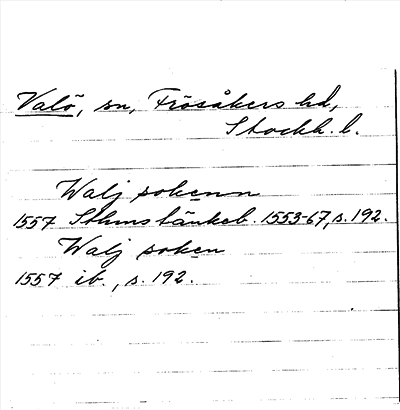 Valö, sn, Frösåkers hd,
Stockh. l.
Walj sokenn
1557 Sthms tänkeb. 1553-67, s. 192.
Walj soken
1557 ib., s. 192.